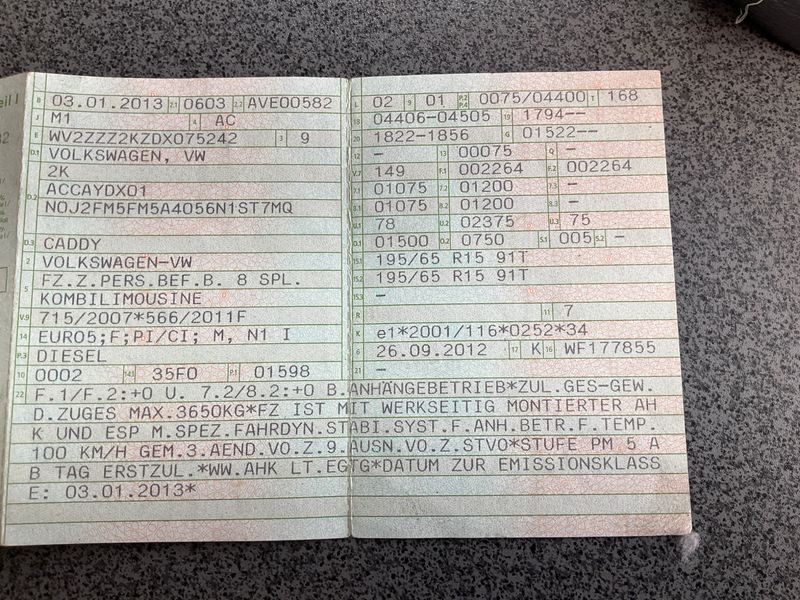 eil I
B 03.01.2013 2.1 0603 2.2 AVE00582
J M1 4 AC
E WV2ZZZ2KZDX075242 3 9
D.1 VOLKSWAGEN, VW
2K
D.2 ACCAYDX01
N0J2FM5FM5A4056N1ST7MQ
D.3 CADDY
2 VOLKSWAGEN-VW
5 FZ.Z.PERS.BEF.B. 8 SPL.
KOMBILIMOUSINE
V.9 715/2007*566/2011F
14 EURO5;F;PI/CI; M, N1 I
P.3 DIESEL
10 0002 14.1 35F0 P.1 01598
L 02 9 01 P.2 P.4 0075/04400 T 168
18 04406-04505 19 1794--
20 1822-1856 G 01522--
12 - 13 00075 Q -
V.7 149 F.1 002264 F.2 002264
7.1 01075 7.2 01200 7.3 -
8.1 01075 8.2 01200 8.3 -
U.1 78 U.2 02375 U.3 75
O.1 01500 O.2 0750 S.1 005 S.2 -
15.1 195/65 R15 91T
15.2 195/65 R15 91T
15.3 -
R 11 7
K e1*2001/116*0252*34
6 26.09.2012 17 K 16 WF177855
21 -
22 F.1/F.2:+0 U. 7.2/8.2:+0 B.ANHÄNGEBETRIEB*ZUL.GES-GEW.
D.ZUGES MAX.3650KG*FZ IST MIT WERKSEITIG MONTIERTER AH
K UND ESP M.SPEZ.FAHRDYN.STABI.SYST.F.ANH.BETR.F.TEMP.
100 KM/H GEM.3.AEND.VO.Z.9.AUSN.VO.Z.STVO*STUFE PM 5 A
B TAG ERSTZUL.*WW.AHK LT.EGTG*DATUM ZUR EMISSIONSKLASS
E: 03.01.2013*